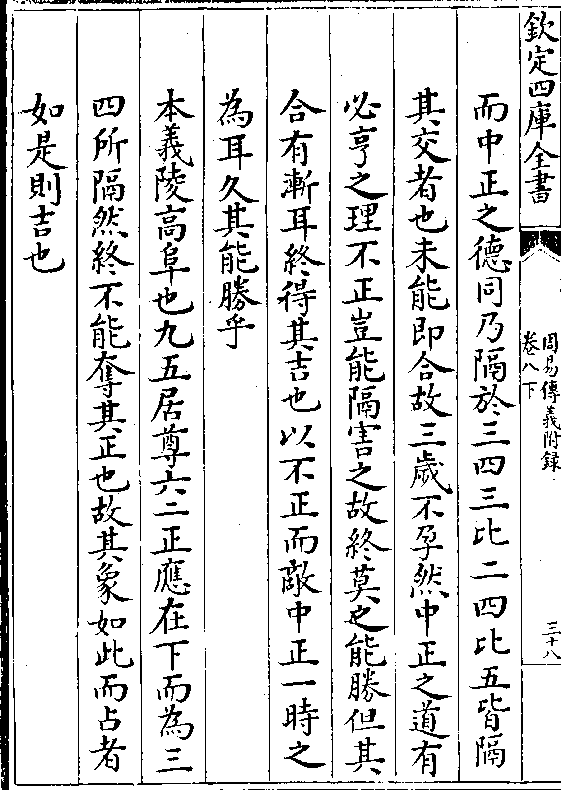 欽定四庫全書
周易傳義附録
卷八下
三十八
而中正之德同乃隔於三四三比二四比五皆隔
其交者也未能即合故三歲不孕然中正之道有
必亨之理不正豈能隔害之故終莫之能勝但其
合有漸耳終得其吉也以不正而敵中正一時之
為耳久其能勝乎
本義陵高阜也九五居尊六二正應在下而為三
四所隔然終不能奪其正也故其象如此而占者
如是則吉也